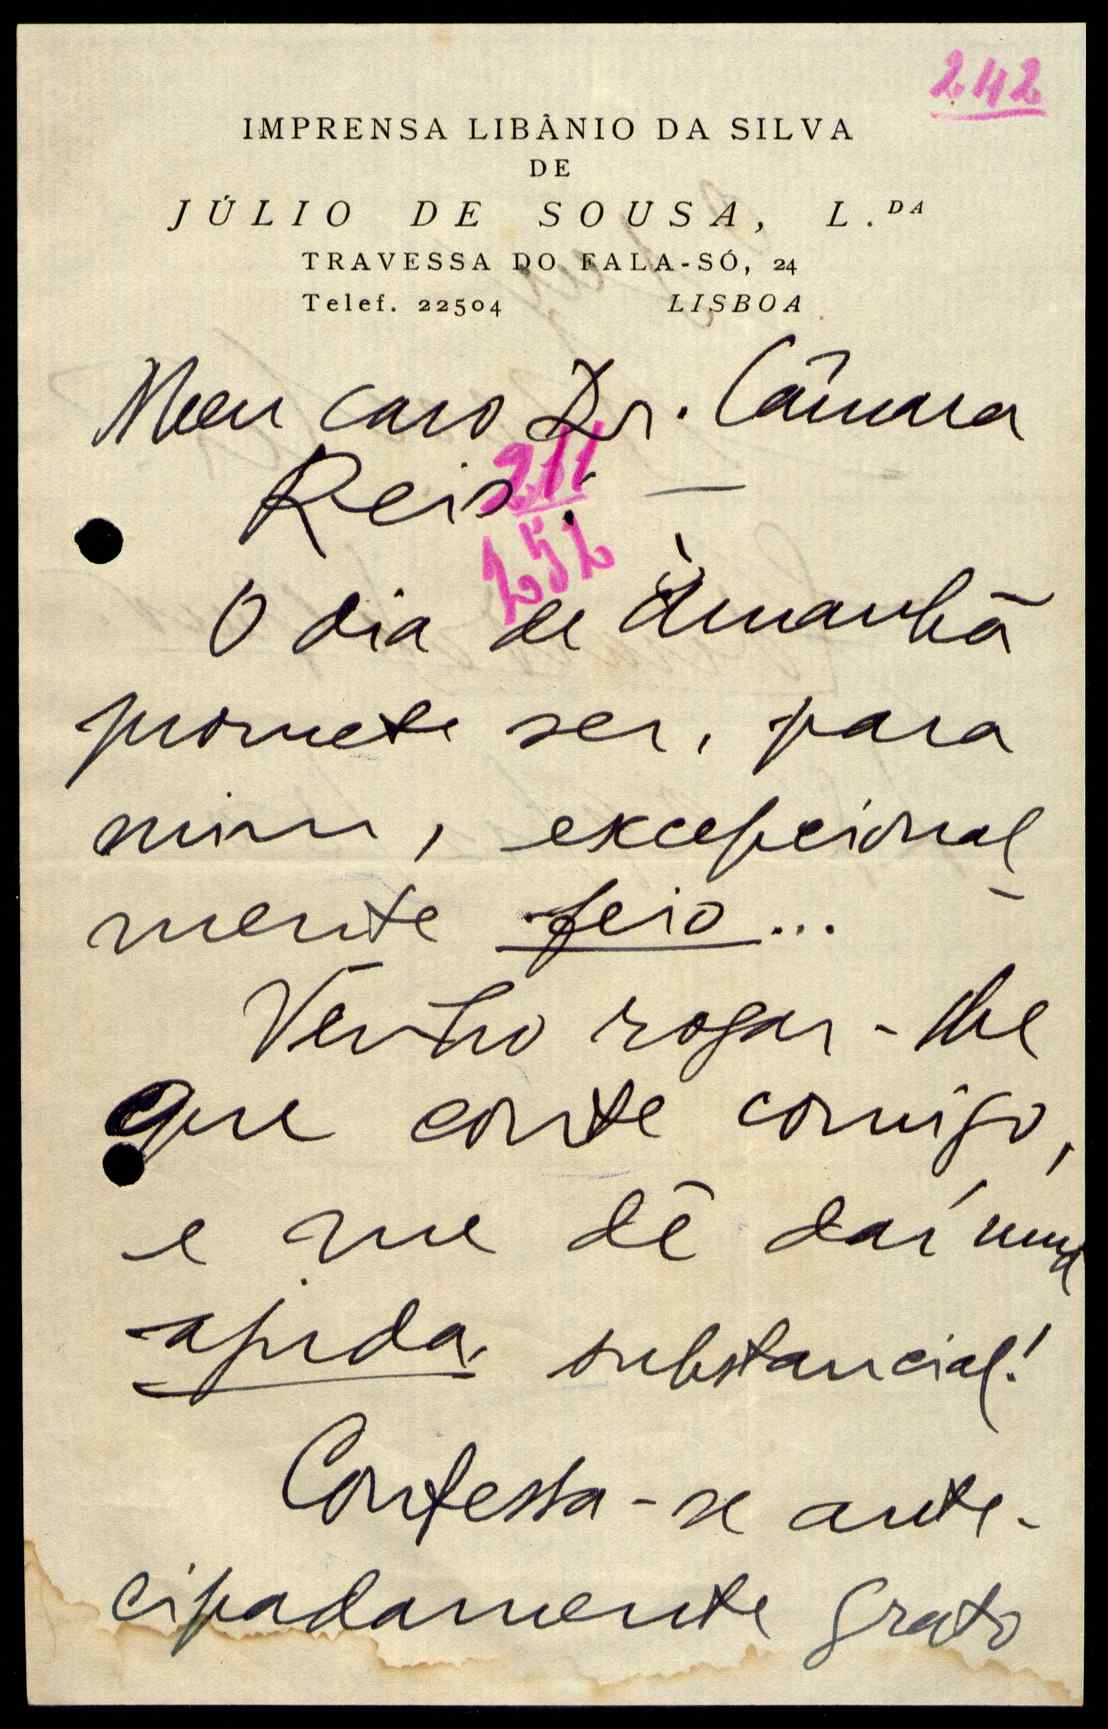 242
IMPRENSA LIBÂNIO DA SILVA
DE
JÚLIO DE SOUSA, L.DA
TRAVESSA DO FALA-SÓ, 24
Telef. 22504 LISBOA
Meu caro Dr. Câmara
Reis: —
211
252
O dia de àmanhã
promete ser, para
mim, excepcional-
mente feio...
Venho rogar-lhe
que conte comigo,
e me dê daí uma
ajuda substancial!
Confessa-se ante-
cipadamente grato